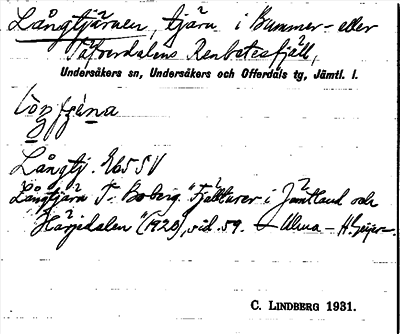 Långtjärnen, tjärn i Bummer- eller
Täfverdalens Renbetesfjäll,
Undersåkers sn, Undersåkers och Offerdals tg, Jämtl. l.
Långtj. Eb55V
Långtjärn T. Boberg "Fjällturer i Jämtland och
Härjedalen" (1920), sid. 59. – Ulma – H. Geijer
C. LINDBERG 1931.